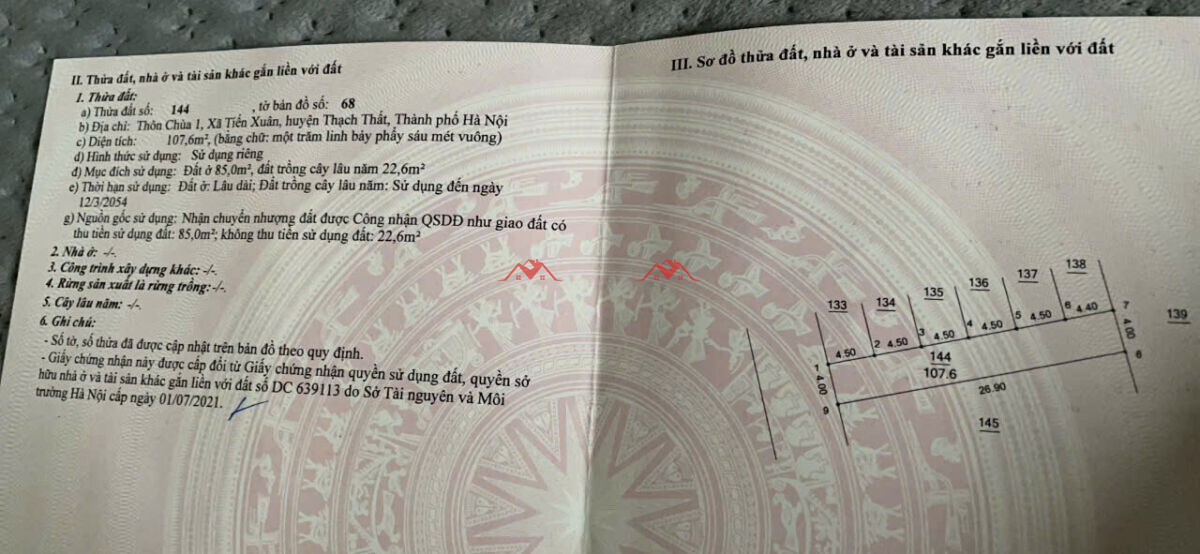 II. Thửa đất, nhà ở và tài sản khác gắn liền với đất
1. Thửa đất:
a) Thửa đất số: 144 , tờ bản đồ số: 68
b) Địa chỉ: Thôn Chùa 1, Xã Tiến Xuân, huyện Thạch Thất, Thành phố Hà Nội
c) Diện tích: 107,6m², (bằng chữ: một trăm linh bảy phẩy sáu mét vuông)
d) Hình thức sử dụng: Sử dụng riêng
đ) Mục đích sử dụng: Đất ở 85,0m², đất trồng cây lâu năm 22,6m²
e) Thời hạn sử dụng: Đất ở: Lâu dài; Đất trồng cây lâu năm: Sử dụng đến ngày
12/3/2054
g) Nguồn gốc sử dụng: Nhận chuyển nhượng đất được Công nhận QSDĐ như giao đất có
thu tiền sử dụng đất: 85,0m²; không thu tiền sử dụng đất: 22,6m²
2. Nhà ở: -/-.
3. Công trình xây dựng khác: -/-.
4. Rừng sản xuất là rừng trồng:-/-.
5. Cây lâu năm: -/-.
6. Ghi chú:
- Số tờ, số thửa đã được cập nhật trên bản đồ theo quy định.
- Giấy chứng nhận này được cấp đổi từ Giấy chứng nhận quyền sử dụng đất, quyền sở
hữu nhà ở và tài sản khác gắn liền với đất số DC 639113 do Sở Tài nguyên và Môi
trường Hà Nội cấp ngày 01/07/2021.
III. Sơ đồ thửa đất, nhà ở và tài sản khác gắn liền với đất
133 134 135 136 137 138 139
1 4.50 2 4.50 3 4.50 4 4.50 5 4.50 6 4.40 7
4.00 144 4.00
107.6
9 26.90 6
145